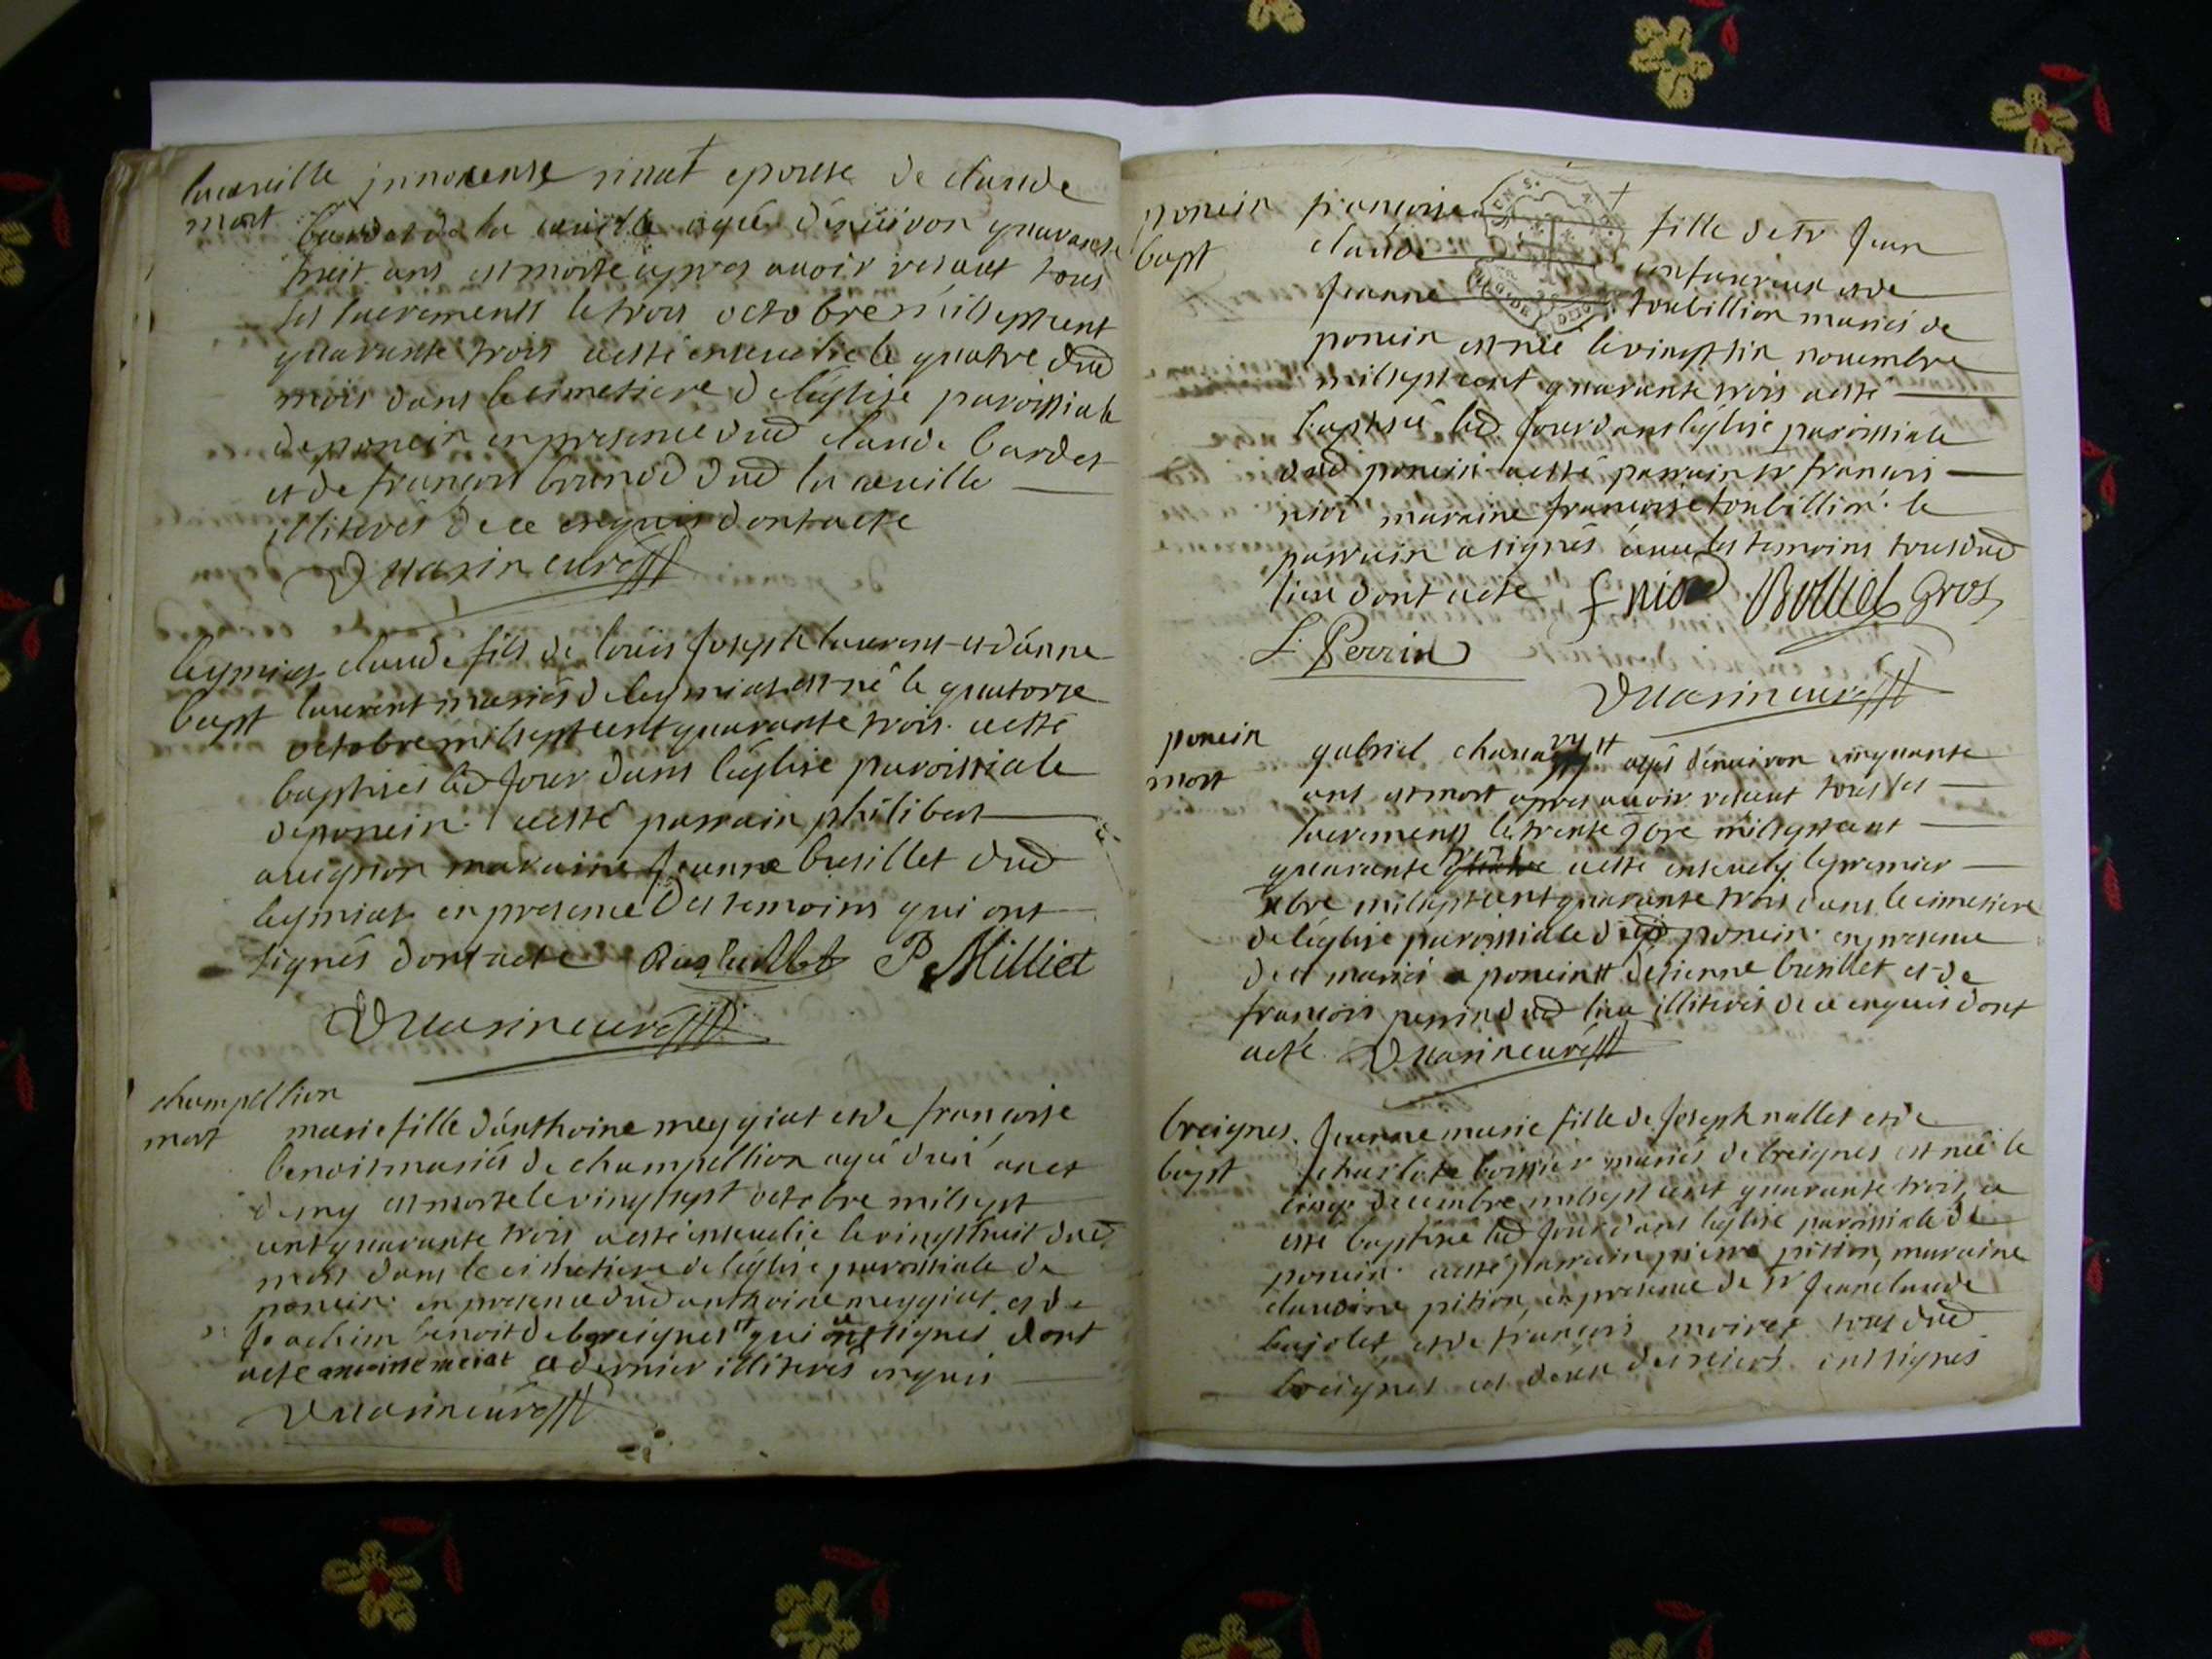 innocense epouse de claude
mort bardet de la cueille agée d'environ quarante
huit ans est morte apres avoir receut tous
ses sacrements le trois octobre mil sept cent
quarante trois a esté ensevelie le quatre dud
mois dans le cimetiere de l'église paroissiale
de poncin en presence dud claude bardet
et de françois brunod dud la cueille
illiterés de ce enquis dont acte
leymiat claude fils de loüis joseph laurent et d'anne
bapt laurent mariés de leymiat est né le quatorze
octobre mil sept cent quarante trois a esté
baptisés led jour dans l'église paroissiale
de poncin a esté parrain philibert
avignon maraine jeanne busillet dud
leymiat en presence des temoins qui ont
signés dont acte P Milliet
champellion
mort marie fille d'anthoine meygiat et de françoise
benoit mariés de champellion agée d'un an et
demy est morte le vingt sept octobre mil sept
cent quarante trois a esté ensevelie le vingt huit dud
mois dans le cimetiere de l'église paroissiale de
poncin en presence dud anthoine meygiat et de
joachim benoit de breignes qui signés dont
acte ce dernier illiterés enquis
poncin françoise fille de sr jean
bapt claude et de
jeanne toubillion mariés de
poncin est née le vingt six novembre
mil sept cent quarante trois a esté
baptisée led jour dans l'église paroissiale
dud poncin a esté parrain sr françois
niod maraine françoise toubillion le
parrain a signés avec les temoins tous dud
lieu dont acte f niod Bolliet Gros
L. Perrin
poncin gabriel agés d'environ cinquante
mort ans est mort apres avoir receut tous les
sacrements le trente 9bre mil sept cent
quarante a esté ensevely le premier
xbre mil sept cent quarante trois dans le cimetiere
de l'église paroissiale dud poncin en presence
d'etienne busillet et de
françois perrin dud lieu illiterés de ce enquis dont
acte
breignes. jeanne marie fille de joseph nallet et de
bapt charlote boissier mariés de breignes est née le
cinq decembre mil sept cent quarante trois a
esté baptisée led jour dans l'église paroissiale de
poncin a esté parrain pierre pition, maraine
claudine pition, en presence de sr jean claude
bajolet et de françois moiret tous dud
breignes les deux derniers ont signés